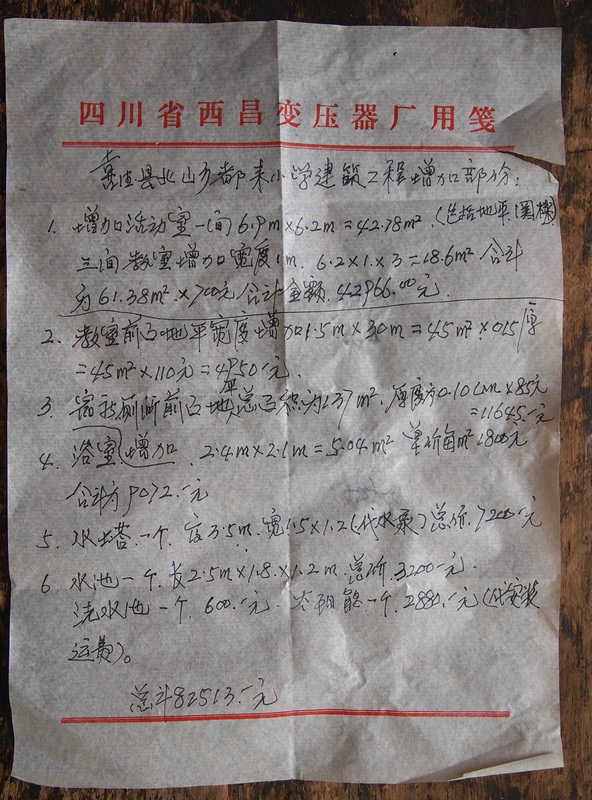 四川省西昌变压器厂用笺
喜德县北山乡都来小学建筑工程增加部份:
1. 增加活动室一间 6.9m×6.2m=42.78m². (包括地平.围栏)
三间教室增加宽度1m. 6.2×1×3=18.6m² 合计
为61.38m²×700元 合计金额.42966.00元.
2. 教室前面地平宽度增加1.5m×30m=45m²×015厚
=45m²×110元=4950.元.
3. 前面地平总面积为137m². 厚度为0.10cm×85元
=11645.元
4. 浴室.增加. 2.4m×2.1m=5.04m² 单价每m² 1800元
合计为9072.元
5. 水塔.一个. 高3.5m.宽1.5×1.2(代水泵)总价.7200元
6. 水池一个.长2.5m×1.8×1.2m.总价.3200元.
洗水池一个.600.元. 太阳能一个.2880.元(代安装
运费)。
总计82513.元